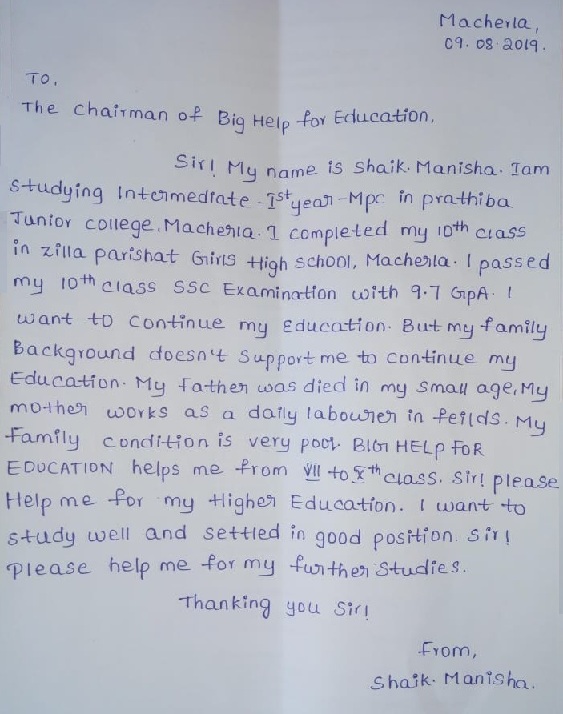 Macherla,
09.08.2019.
TO,
The chairman of Big Help for Education.
Sir! My name is Shaik. Manisha. Iam
studying Intermediate. Ist year-Mpc in prathiba
Junior college, Macherla. I completed my 10th class
in zilla parishat Girls High school, Macherla. I passed
my 10th class SSC Examination with 9.7 GPA. I
want to continue my Education. But my family
Background doesn't support me to continue my
Education. My father was died in my small age, My
mother works as a daily labourer in feilds. My
family condition is very poor. BIG HELP FOR
EDUCATION helps me from VII to Xth class. Sir! please
Help me for my Higher Education. I want to
study well and settled in good position. Sir!
please help me for my further studies.
Thanking you Sir!
From,
Shaik. Manisha.